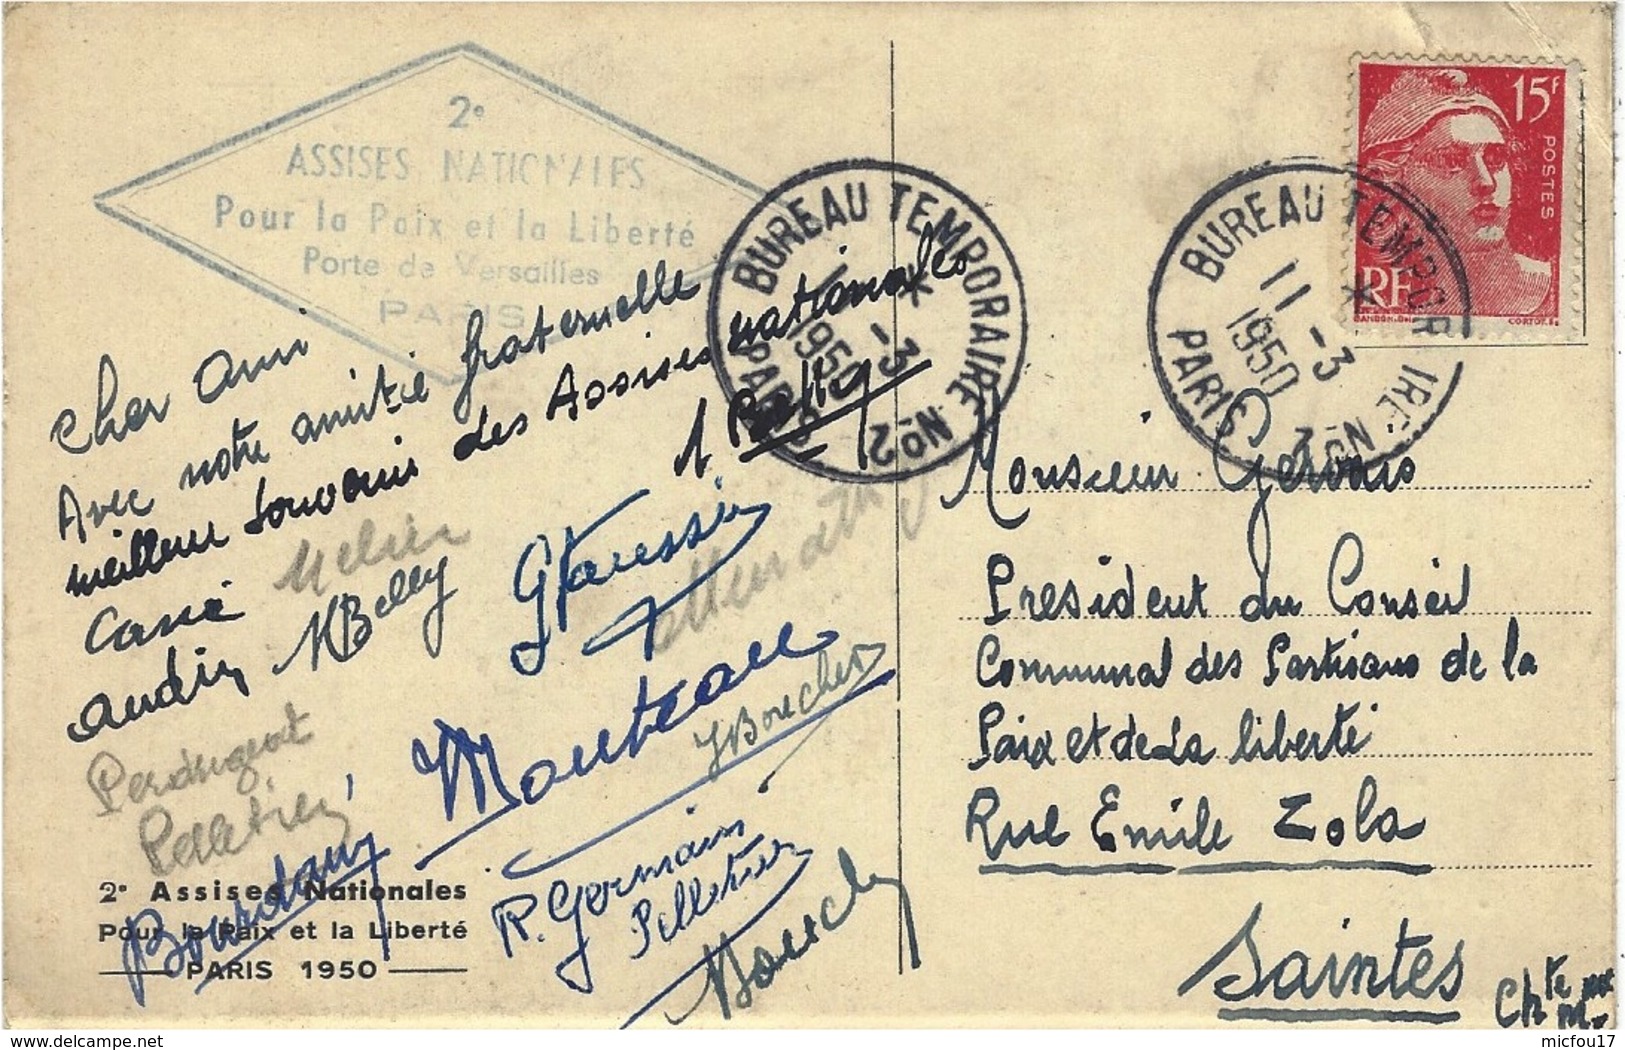 2e
ASSISES NATIONALES
Pour la Paix et la Liberté
Porte de Versailles
PARIS
BUREAU TEMPORAIRE No 2
PARIS
11 -3
1950
BUREAU TEMPORAIRE No 2
PARIS
11 -3
1950
15F
POSTES
RF
Cher ami
Avec notre amitié fraternelle
meilleur souvenir des Assises nationales
MBelly
Monteau
JBoucher
Pelletier
R. Germain
Pelletier
2e Assises Nationales
Pour la Paix et la Liberté
PARIS 1950
Monsieur Gervais
President du Conseil
Communal des Partisans de la
Paix et de la liberté
Rue Emile Zola
Saintes
Chte Mme
delcampe.net
micfou17